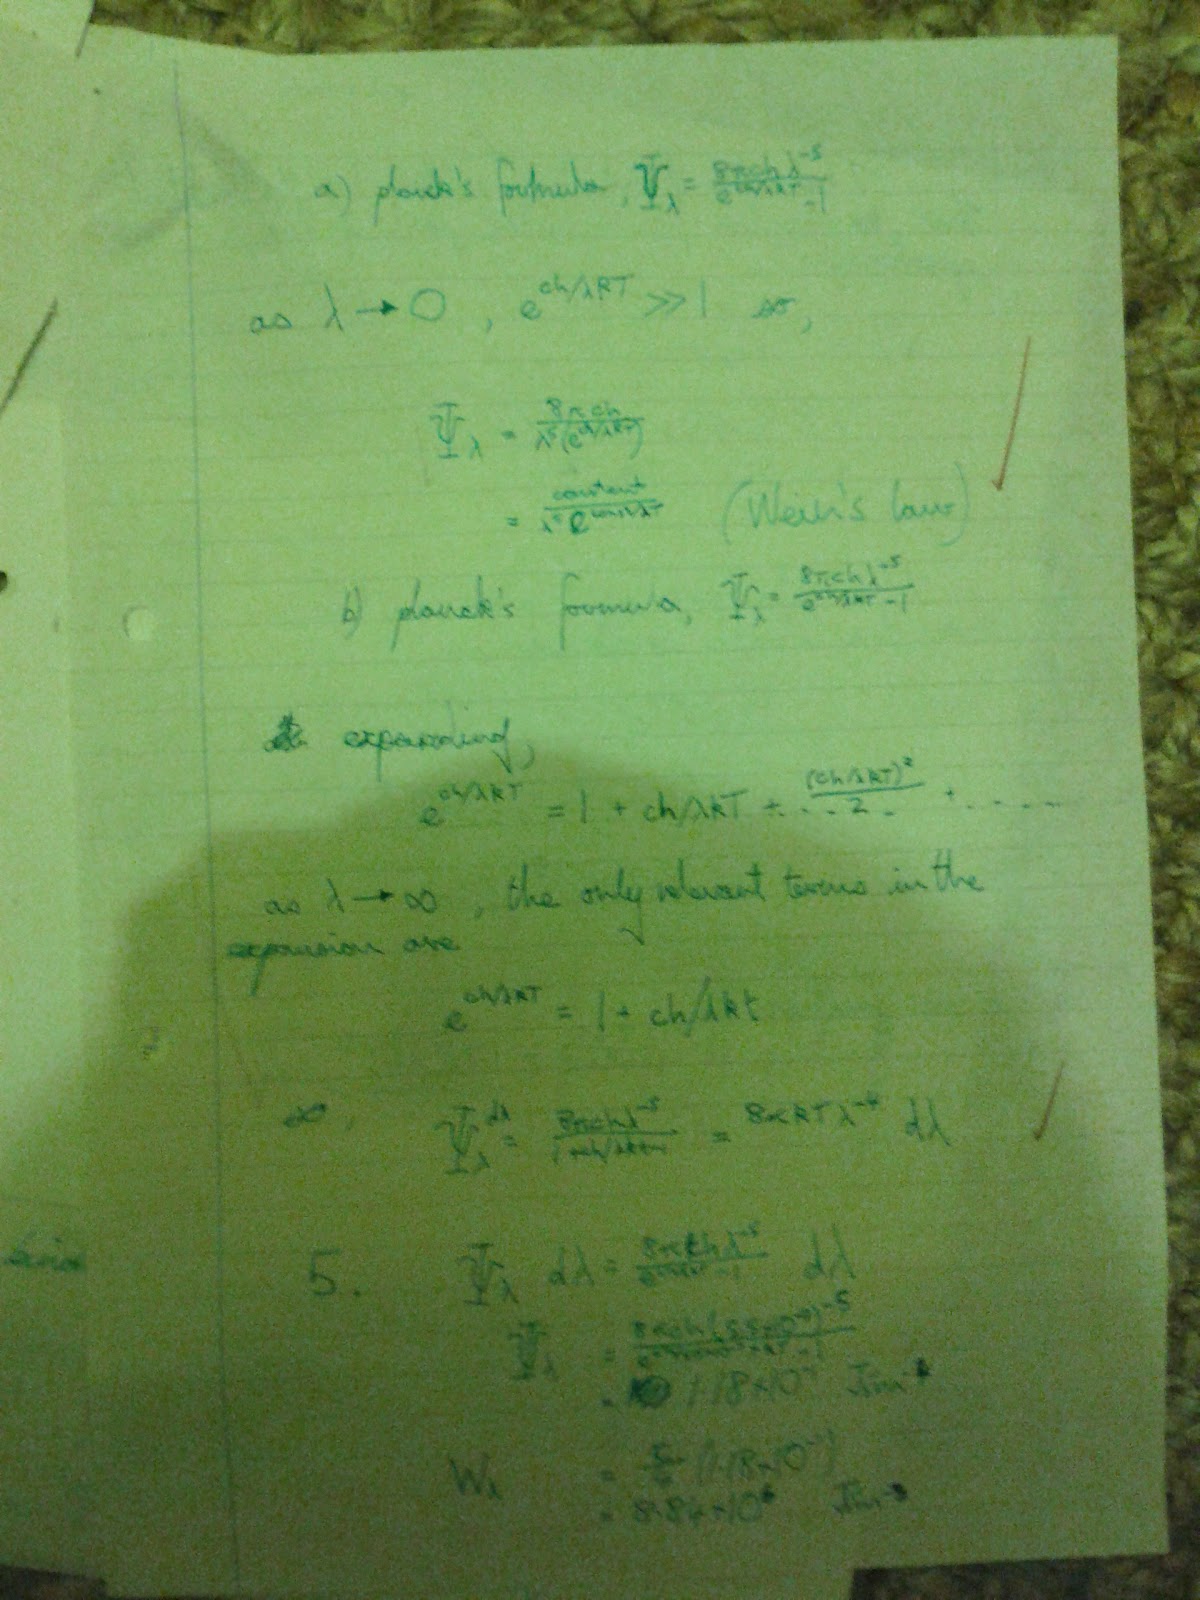 a) planck's formula, Ψλ = 8πchλ⁻⁵ / e^(ch/λkT) - 1
as λ → 0 , e^(ch/λkT) ≫ 1
Ψλ = 8πch / λ⁵(e^(ch/λkT))
= constant / λ⁵ e^(const/λT) (Wein's law)
b) planck's formula, Ψλ = 8πchλ⁻⁵ / e^(ch/λkT) - 1
expanding,
e^(ch/λkT) = 1 + ch/λkT + (ch/λkT)² / 2 + ....
as λ → ∞ , the only relevant terms in the
expansion are
e^(ch/λkT) = 1 + ch/λkt
so, Ψλ dλ = 8πchλ⁻⁵ / = 8πkTλ⁻⁴ dλ
5. Ψλ dλ = 8πchλ⁻⁵ / e^(ch/λkT) - 1 dλ
Ψλ =
= 1.18×10 Jm
Wλ = (1.18×10 )
= 8.84×10 Jm